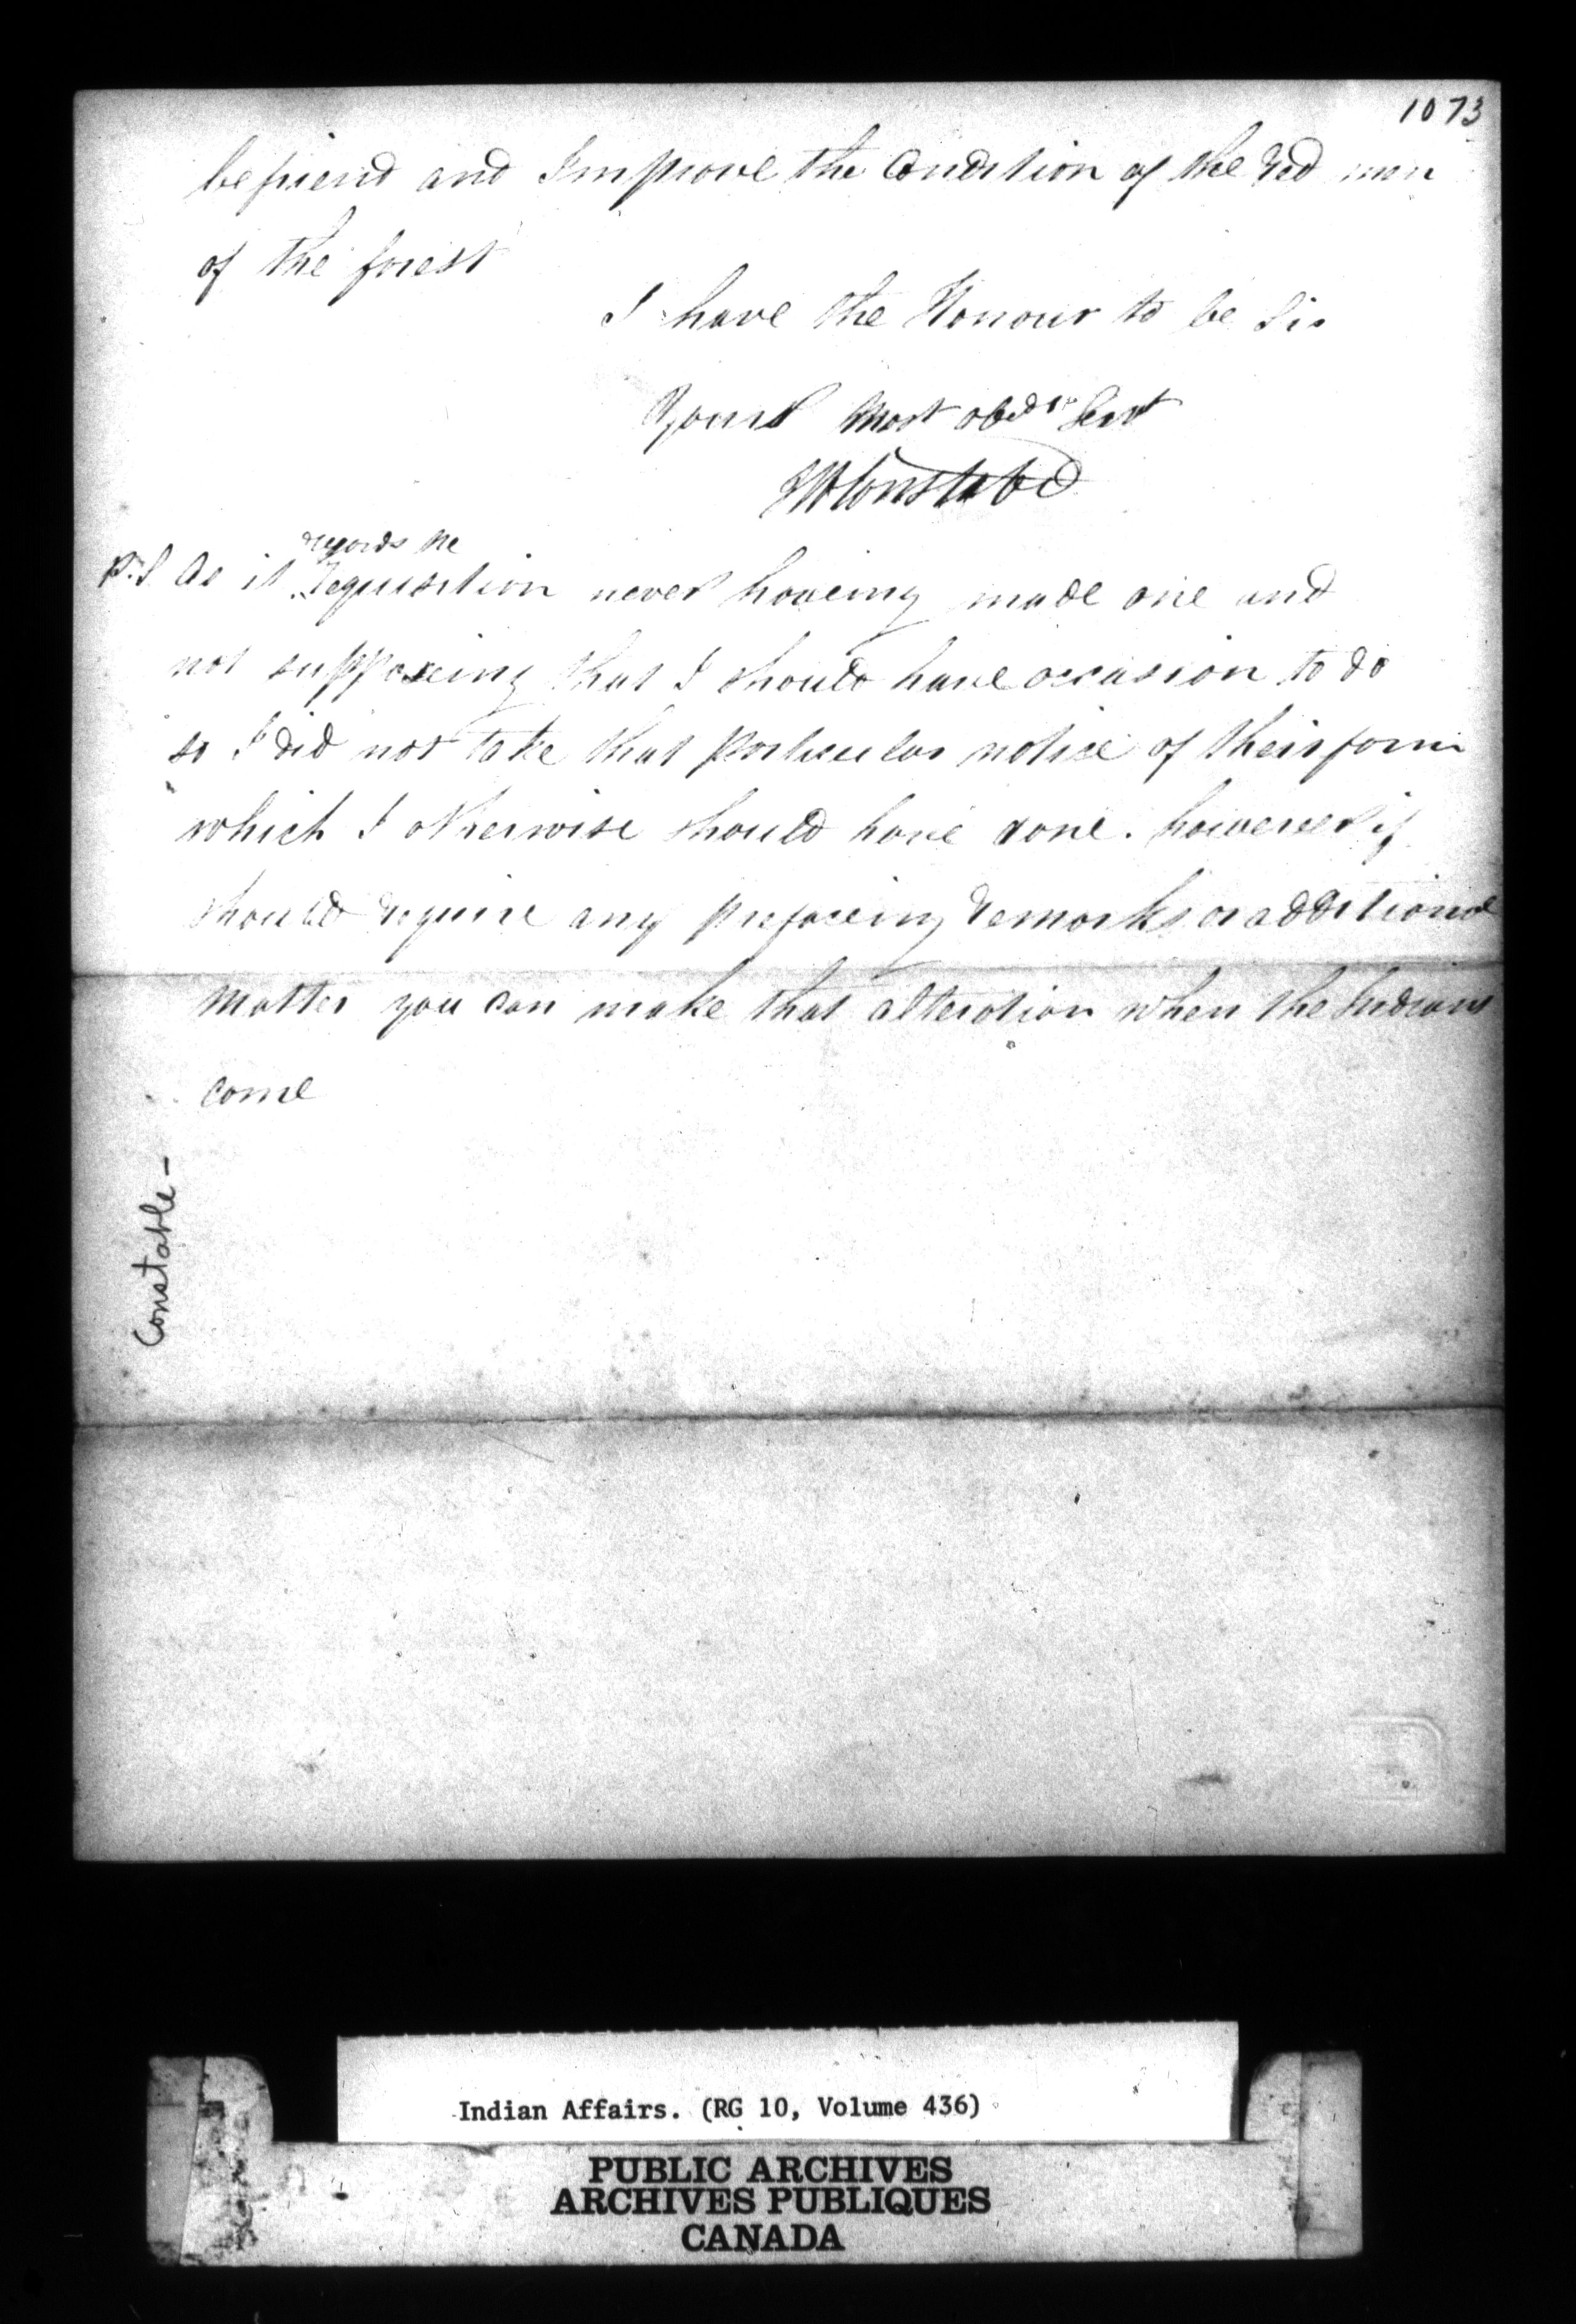 1073
befriend and Improve the Condition of the Red men
of the forest
I have the Honour to be Sir
Yours Most obdt Servt
Constable
regards the
P.S As it Requisition never haveing made one and
not supposeing that I should have occasion to do
so I did not take that particular notice of their form
which I otherwise should have done. however if
should require any prefaceing Remarks or additional
Matter you can make that alteration when the Indians
come
Constable -
Indian Affairs. (RG 10, Volume 436)
PUBLIC ARCHIVES
ARCHIVES PUBLIQUES
CANADA